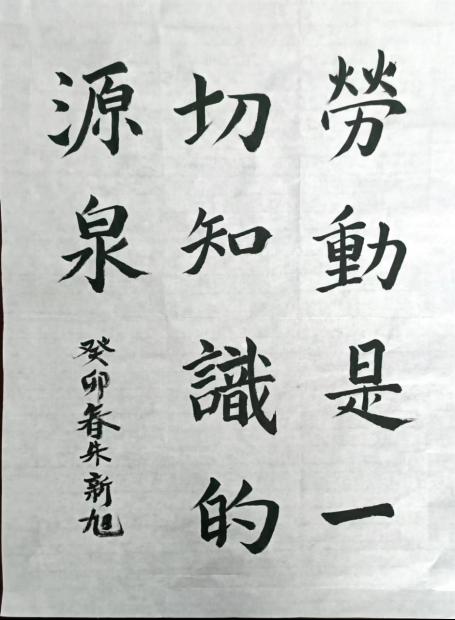 勞動是一
切知識的
源泉
癸卯春朱新旭